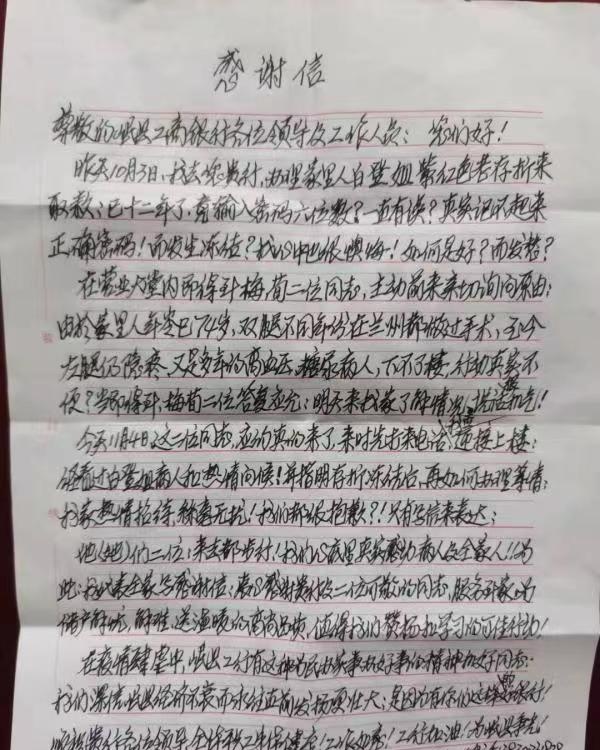 感谢信
尊敬的岷县工商银行各位领导及工作人员：您们好！
昨天10月3日，我去您贵行，办理家里人白登姐紫红色老存折来
取款；已十二年了，有输入密码六位数？一直有误？真实记不起来
正确密码！而发生冻结？我心中也很懊悔！如何是好？而发愁？
在营业大堂内即得到梅、荀二位同志，主动前来亲切询问原因：
由於家里人年老已74岁，双腿不同年份在兰州都做过手术，至今
左腿仍隐疼，又是多年的高血压，糖尿病人，下不了楼，行动真实不
便？当即得到，梅荀二位答复应允：明天来找家了解情况
今天11月4日这二位同志，应约真的来了，来时先打来电话，迎接上楼；
经看过白登姐病人和热情问候！并指明存折冻结后，再如何办理等情；
我家热情招待，称毫无扰！我们都很抱歉？！只有写信来表达；
她(他)们二位；来去都步行！我们心底里真实感动病人及全家人！！为
此；我代表全家写感谢信；衷心感谢贵行及二位可敬的同志，服务到家为
储户解忧，解难，送温暖的高尚品质，值得我们赞扬和学习的可佳行动！
在疫情肆虐中，岷县工行有这种为民办家事和好事的精神和好同志；
我们深信岷县经济不衰而永往直前发扬更壮大；是因为有你们这些好银行！
顺祝贵行各位领导全体职工身体健康！工作如意！工行加油！为岷县争光！